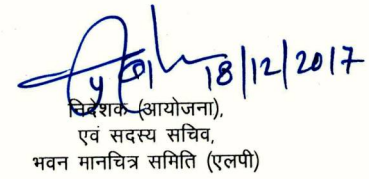 18/12/2017
निदेशक (आयोजना),
एवं सदस्य सचिव,
भवन मानचित्र समिति (एलपी)